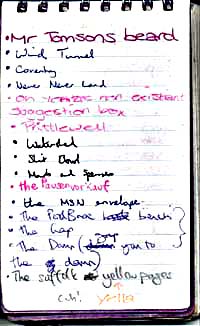 • Mr Tomsons beard
• Wind Tunnel
• Coventry
• Never Never Land
• On non existant
suggestion box
• Prittlewell
• Waterhol
• Shit Bowl
• Marks and Spencers
• the Pausenverkauf
• the MSN envelope
• The PostBox bench
• The Gap
• The Dam ( you to
the damn)
• The suffolk yellow pages
yella